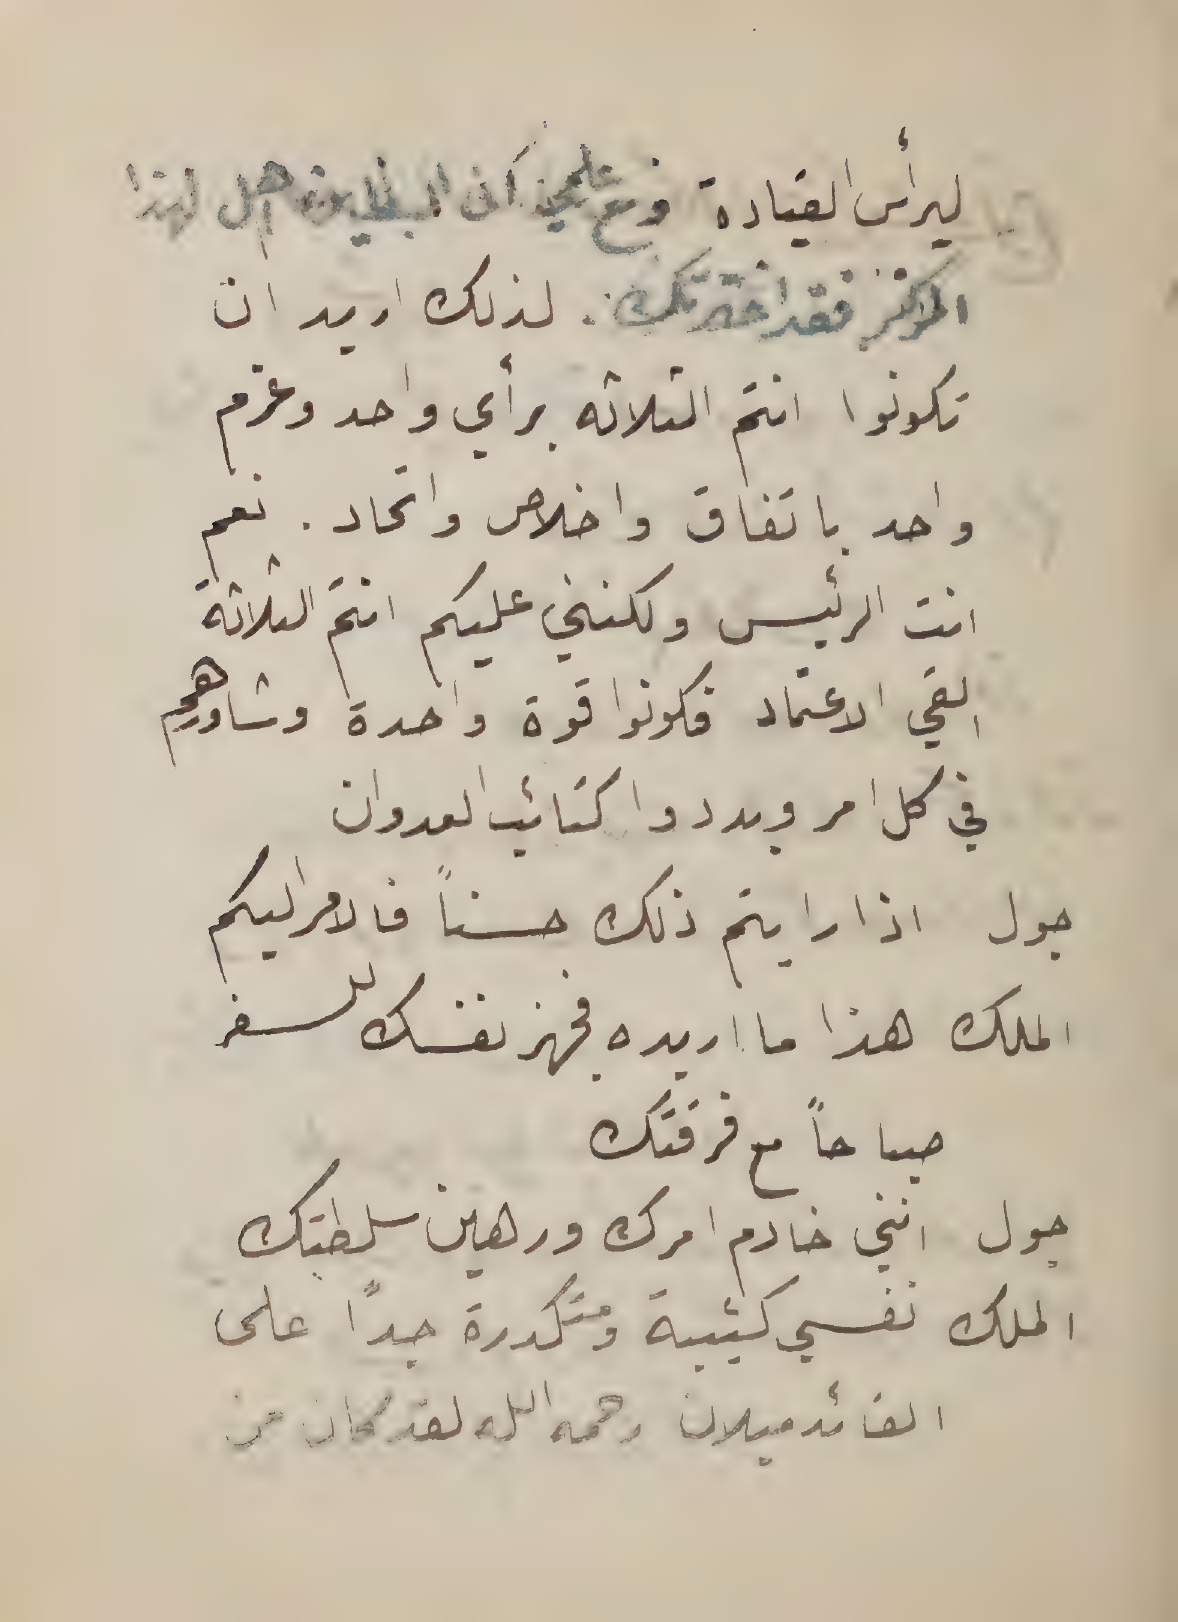 ليرأس القيادة ومع علمي ان البطلين اهل لهذا
المركز فقد اخترتك . لذلك اريد ان
تكونوا انتم الثلاثه برأي واحد وعزم
واحد باتفاق واخلاص واتحاد . نعم
انت الرئيس ولكنني عليكم انتم الثلاثة
القي الاعتماد فكونوا قوة واحدة وشاورهم
في كل امر وبددوا كتائب العدوان
جول اذا رايتم ذلك حسناً فالامر اليكم
الملك هذا ما اريده فجهز نفسك للسفر
صباحاً مع فرقتك
جول انني خادم امرك ورهين سلطتك
الملك نفسي كئيبة ومتكدرة جداً على
القائد ميلان رحمه الله لقد كان من